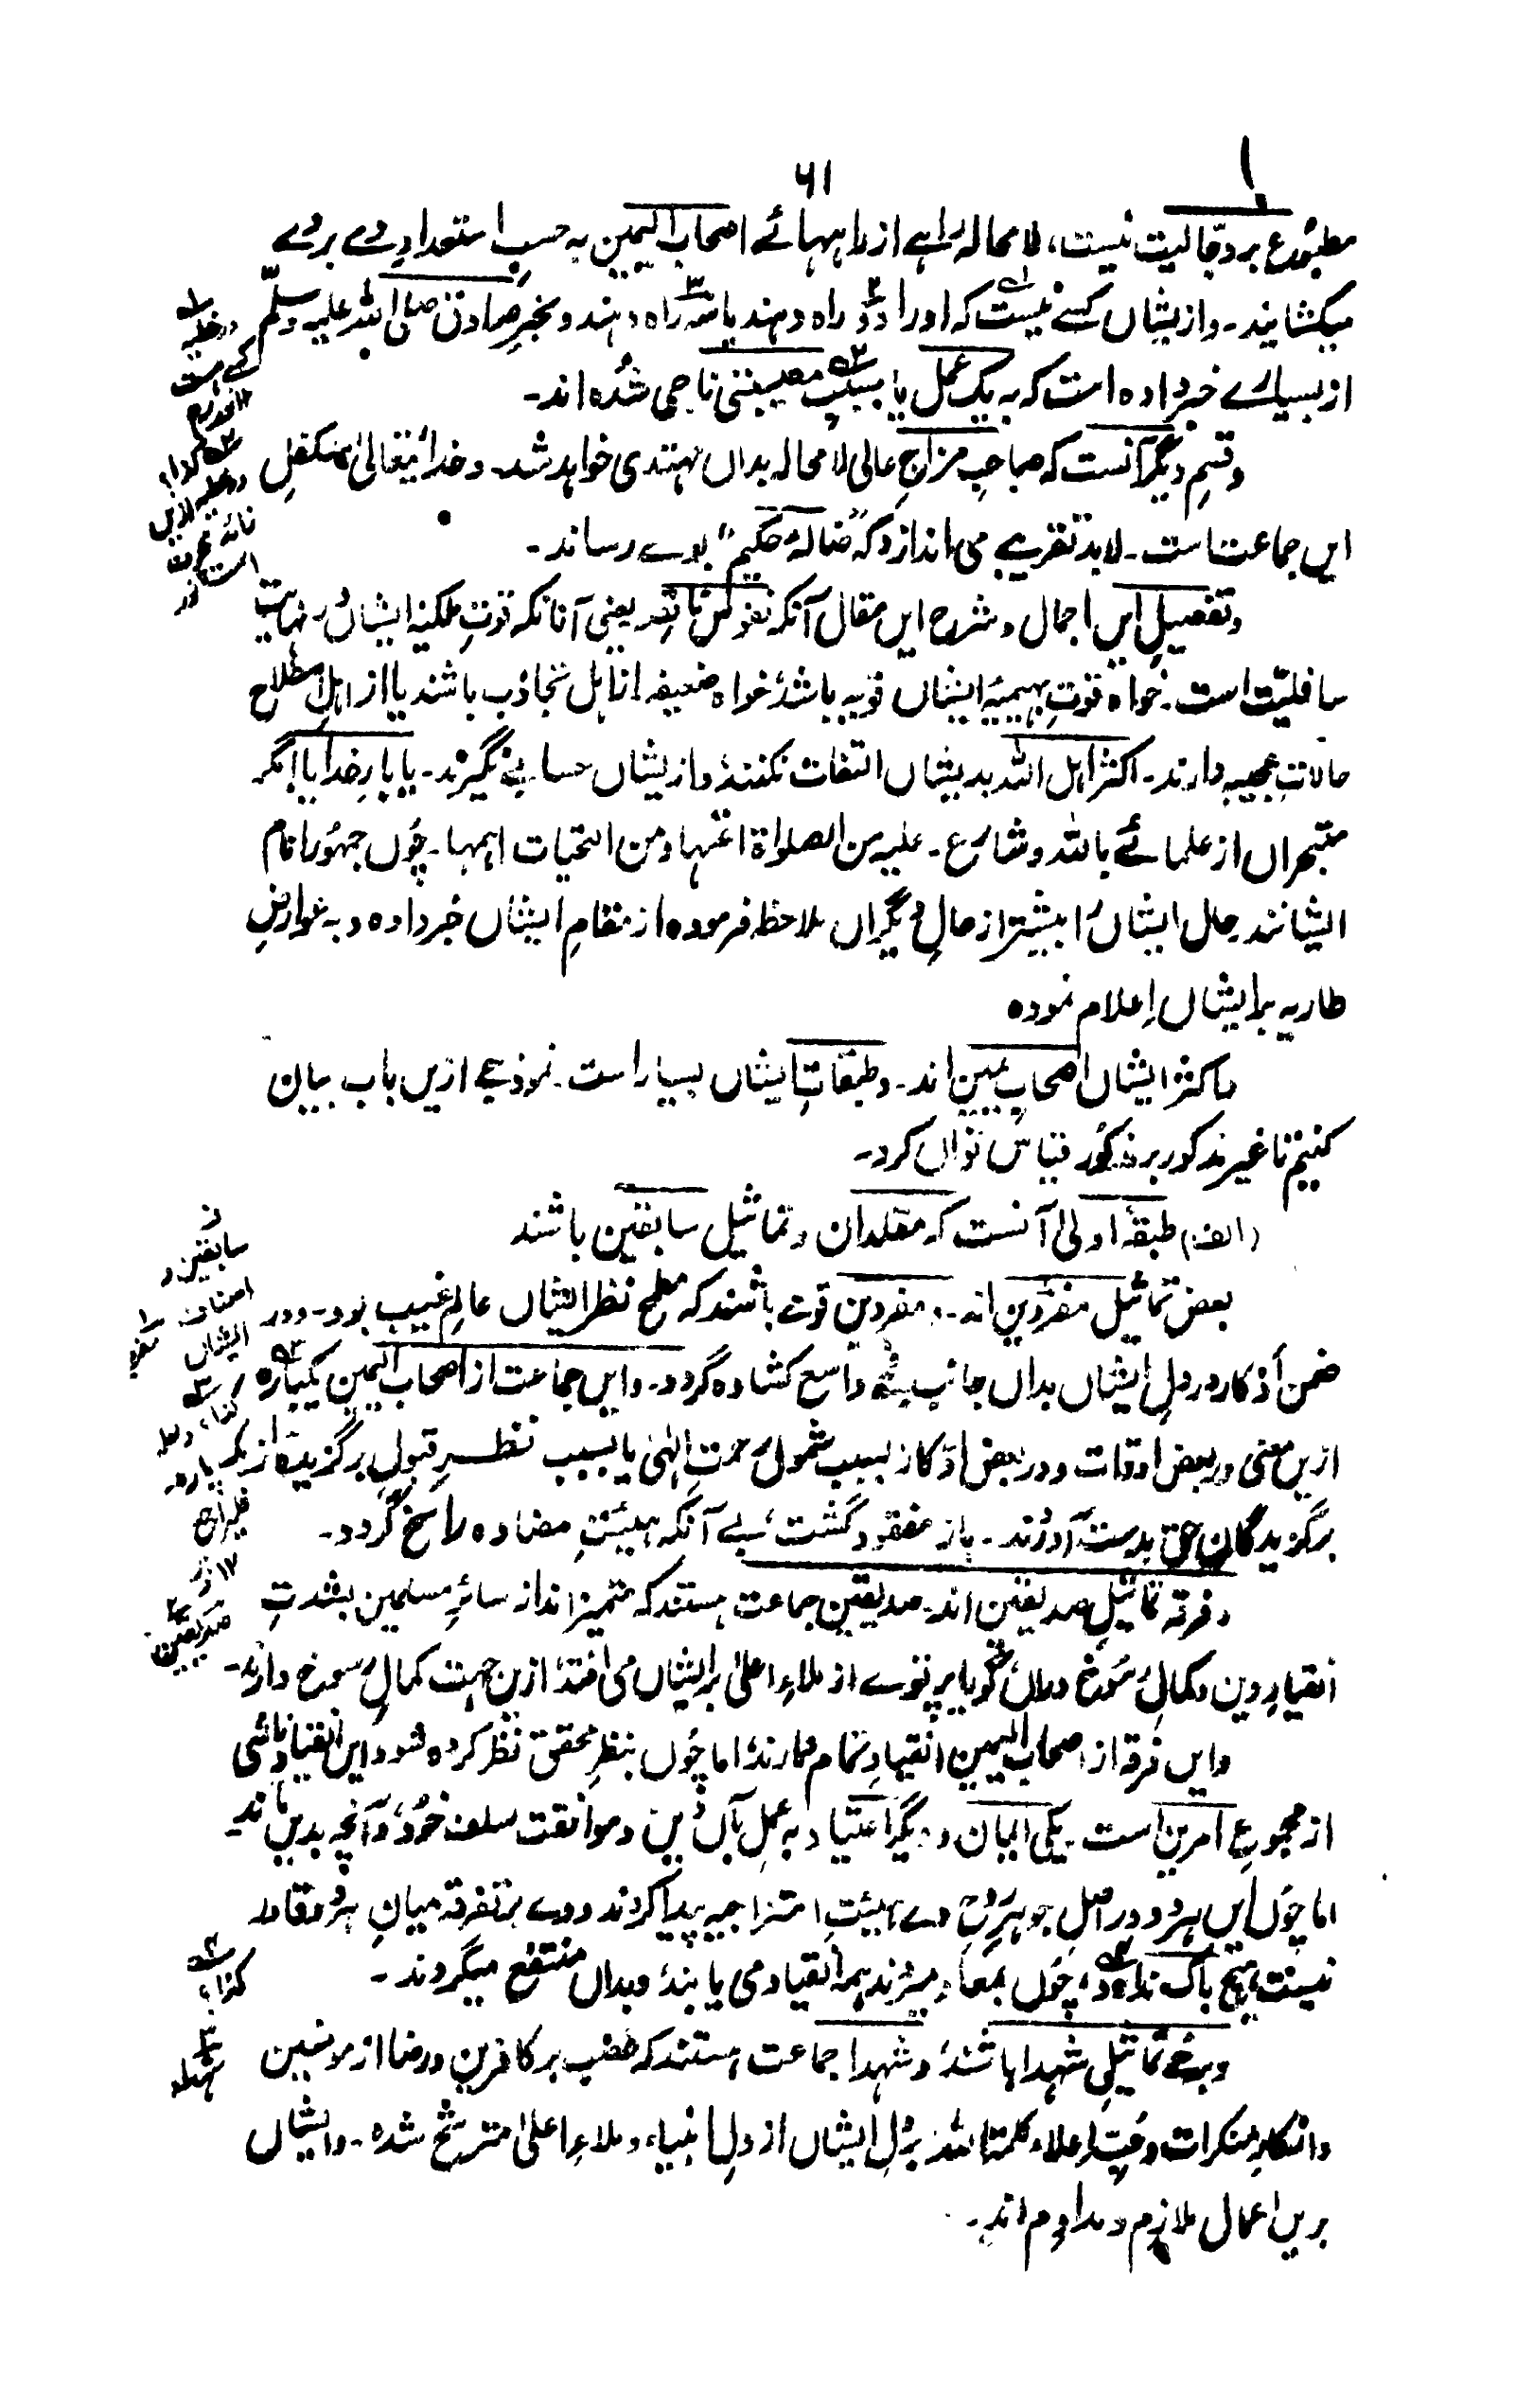 ۶۱
مطبوع بر دجالیت نیست، لا محالہ راہے از راہہائے اصحاب الیمین بہ حسبِ استعدادِ وے بر وے
میکشایند۔ و از یشاں کسے نیست کہ او را دو راہ دہند یا سہ راہ دہند و مخبرِ صادق صلی اللہ علیہ وسلّم
از بسیارے خبر دادہ است کہ بہ یک عمل یا بسببِ مصیبتی ناجی شدہ اند۔
و قسمِ دیگر آنست کہ صاحبِ مزاجِ عالی لا محالہ بداں مہتدی خواہد شد۔ و خدائیتعالیٰ متکفلِ
ایں جماعت است۔ لابد تقریبے می اندازد کہ "ضالۂ حکیم" بوے رساند۔
و تفصیلِ ایں اجمال و شرح ایں مقال آنکہ نفوسِ ناقصہ یعنی آنانکہ قوتِ ملکیۂ ایشاں در نہایت
سافلیّت است۔ خواہ قوتِ بہیمیۂ ایشاں قویہ باشد خواہ ضعیفہ از اہل تجاذب باشند یا از اہلِ اصطلاح
حالاتِ عجیبہ دارند۔ اکثر اہل اللہ بدیشاں التفات نکنند و ازیشاں حسابے نگیرند۔ یا بارِ خدایا! مگر
متبحراں از علمائے باللہ و شارع۔ علیہ من الصلواة اتمہا و من التحیات ایمہا۔ چُوں جمہُورِ انام
ایشانند حال ایشاں را بیشتر از حالِ دیگراں ملاحظہ فرمودہ از مقامِ ایشاں خبر دادہ و بہ عوارضِ
طاریہ بر ایشاں اِعلام نمودہ
و اکثر ایشاں اصحابِ یمین اند۔ و طبقاتِ ایشاں بسیار است۔ نموذجے ازیں باب بیان
کنیم تا غیر مذکور بر مذکُور قیاس تواں کرد۔
(الف) طبقۂ اولیٰ آنست کہ مقلدان و تماثیل سابقین باشند
بعض تماثیل مفرّدین اند۔ و مفردین قوے باشند کہ مطمح نظر ایشاں عالمِ غیب بود۔ و در
ضمن اذکار در دلِ ایشاں بداں جانب واسع کشادہ گردد۔ و ایں جماعت از اصحاب الیمین یکبارہ
ازیں معنی در بعض اوقات و در بعض اذکار بسبب شمولِ رحمتِ الٰہی یا بسبب نظرِ قبولِ برگزیدہ از
برگزیدگانِ حق بدست آورند۔ باز مفقود گشت، بے آنکہ ہیئتِ مضادہ راسخ گردد۔
و فرقہ تماثیلِ صدیقین اند۔ صدیقین جماعت ہستند کہ متمیز اند از سائرِ مسلمین بشدتِ
انقیادِ دین و کمالِ رسُوخ دراں گویا پرتوے از ملاءِ اعلیٰ بر ایشاں می افتد ازین جہت کمالِ رسوخ دارند۔
و ایں فرقہ از اصحاب الیمین انقیادِ تمام دارند اما چُوں بنظرِ محقق نظر کردہ شود ایں انقیاد ناشی
از مجموعِ امرین است یکی ایمان و دیگر اعتیاد بہ عملِ آں دین و موافقت سلف خود، و آنچہ بدیں ماند۔
اما چوں ایں ہر دو در اصلِ جوہرِ رُوحِ وے ہیئتِ امتزاجیہ پیدا کردند و وے بر تفرقہ میانِ ہر دو قادر
نیست، ہیچ باک ندارد، چوں بمعاد میروند ہمہ انقیاد می یابند و بداں منتفع میگردند۔
و برخے تماثیلِ شہدا باشند و شہدا جماعت ہستند کہ غضب بر کافرین و رضا از مومنین
و انکارِ منکرات و حُبِ اعلاء کلمۃ اللہ بر دلِ ایشاں از دلِ انبیاء و ملاءِ اعلیٰ مترشح شدہ۔ و ایشاں
بریں اعمال ملازم و مداوم اند۔
سابقین و
اصناف
ایشاں
صدیقین
کذا؟
شہداء